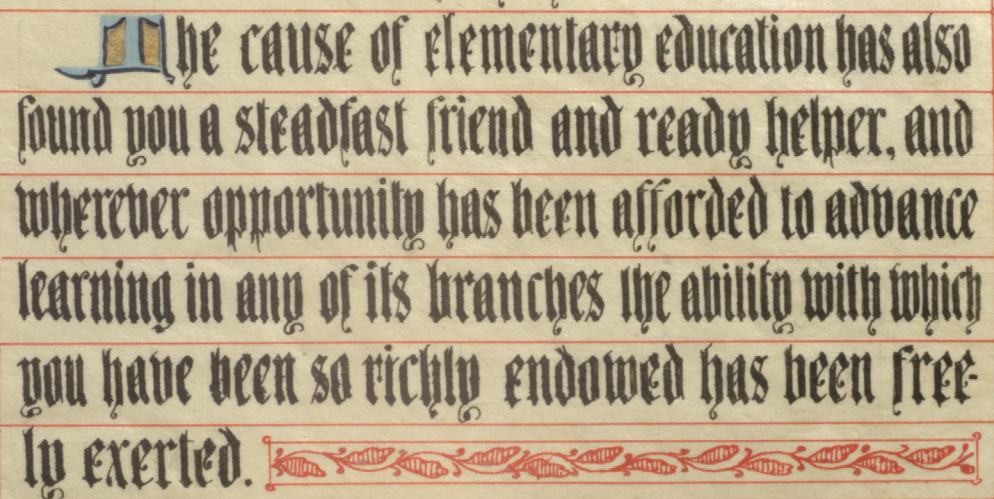 The cause of elementary education has also
found you a steadfast friend and ready helper, and
wherever opportunity has been afforded to advance
learning in any of its branches the ability with which
you have been so richly endowed has been free-
ly exerted.